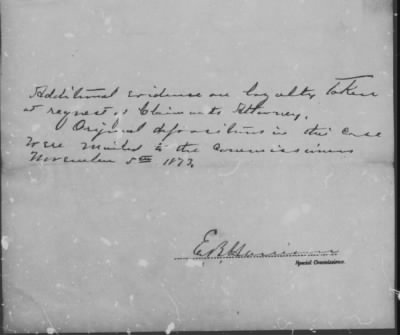 Additional evidence on loyalty taken
at request of Claimants Attorney.
Original depositions in the Case
were mailed to the Commissioners
November 5th 1872.
Special Commissioner.